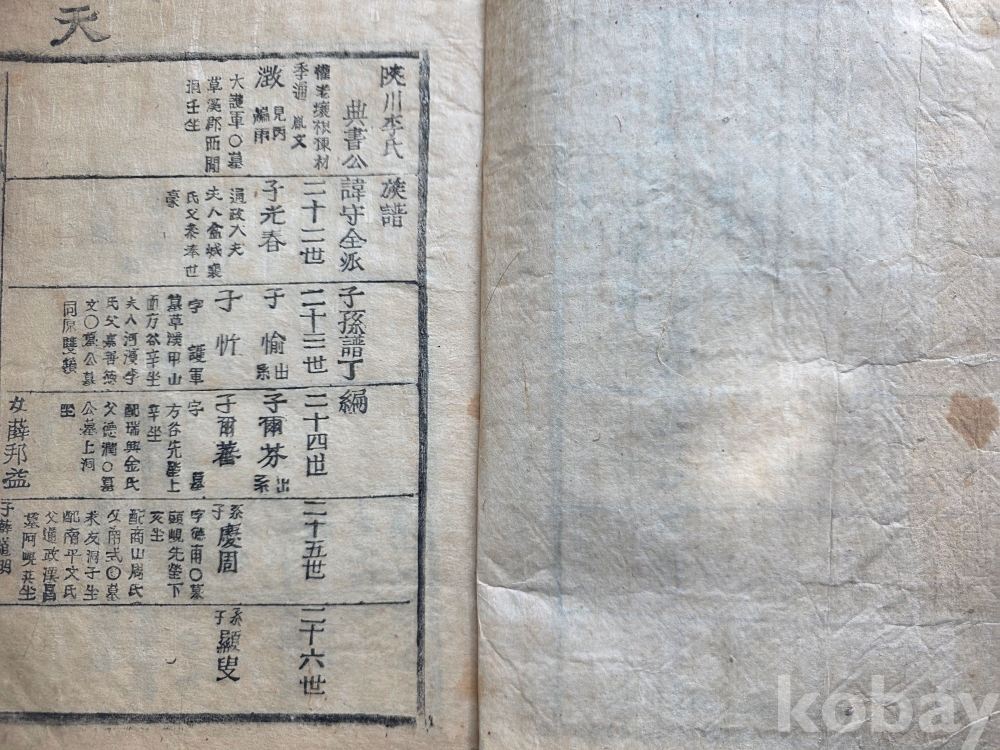 天
陜川李氏族譜
典書公諱守全派子孫譜丁編
二十二世
二十三世
二十四世
二十五世
二十六世
季通 胤文
澂
見丙
編雨
大護軍〇墓
草溪郡西閒
洞壬坐
子光春
通政大夫
夫人盆城裵
氏父參奉世
豪
子愉
出系
子忻
字 護軍
墓草溪甲山
面方谷辛坐
夫人河濱李
氏父嘉善德
文〇墓公墓
同原雙墳
子爾芬
出系
子爾蕃
字 墓
方谷先塋上
辛坐
配瑞興金氏
父德潤〇墓
公墓上洞
坐
女薛邦益
系子慶周
字德甫〇墓
頭峴先塋下
亥坐
配商山周氏
父南式〇墓
友洞子坐
配南平文氏
父通政漢昌
墓阿峴艮坐
子薛道明
系子顯叟
kobay